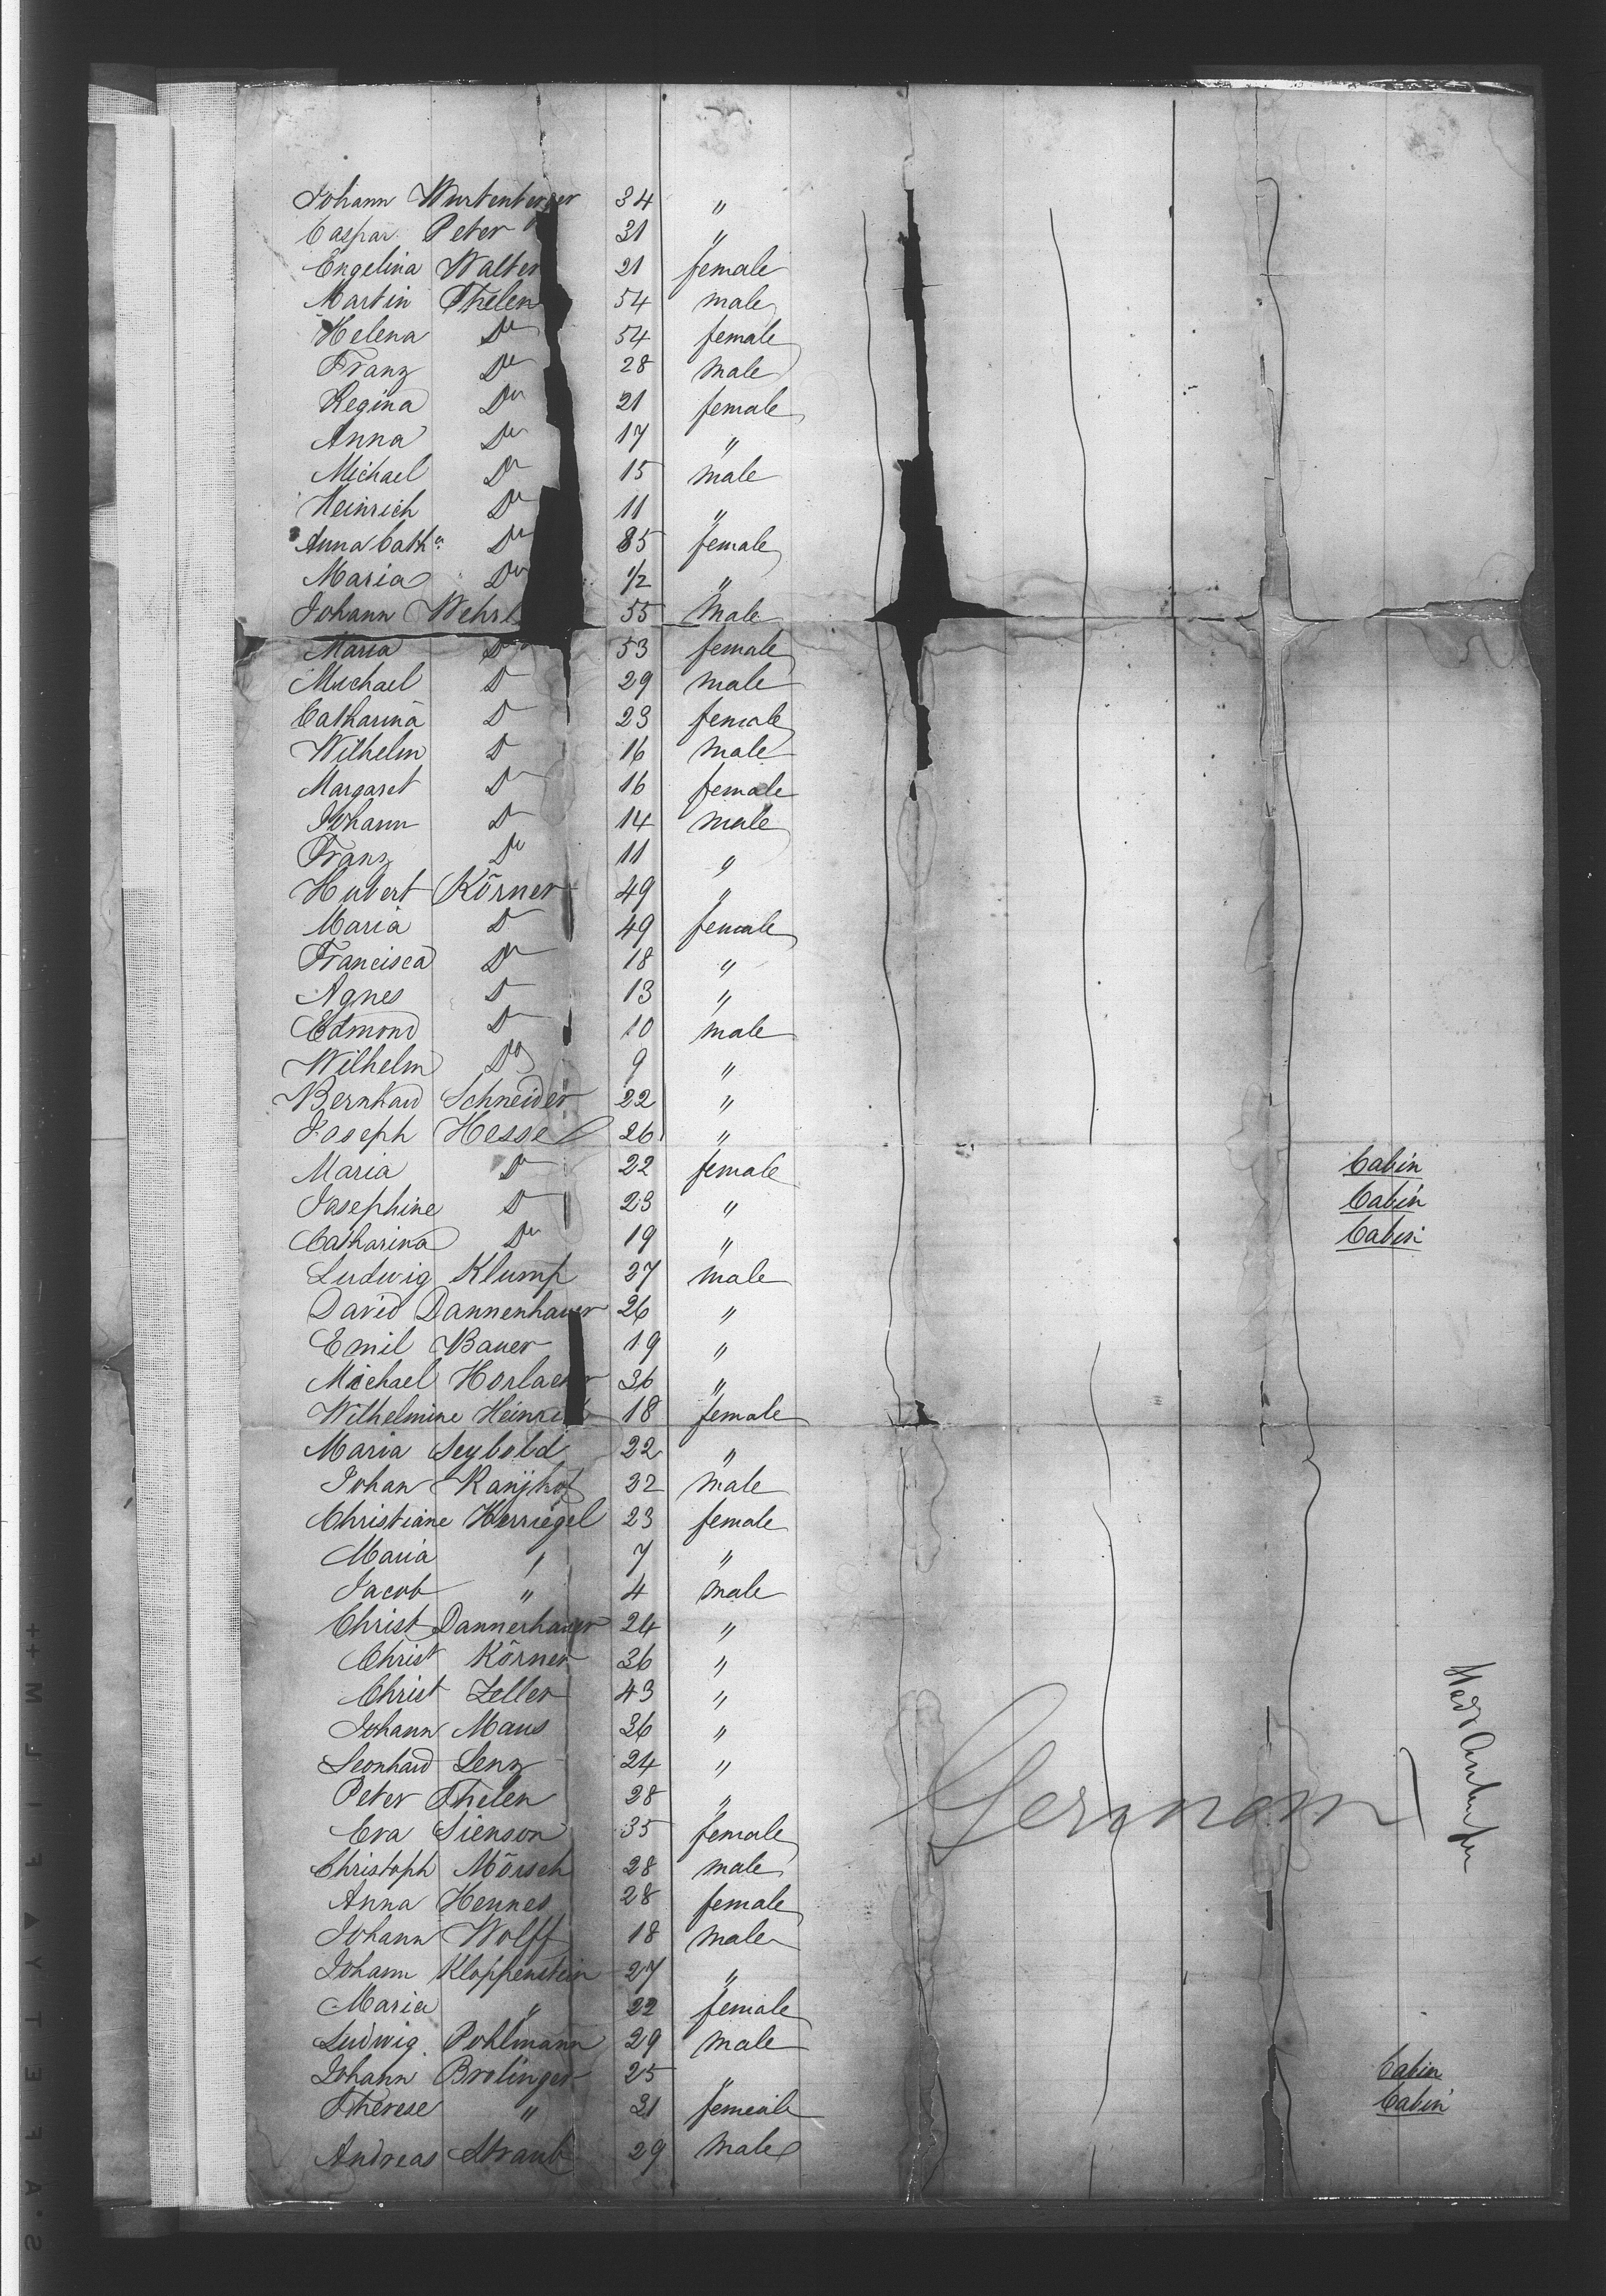 Johann Wurtenberger 34 "
Caspar Peter 31 "
Engelina Walter 21 female
Martin Thelen 54 male
Helena Do 54 female
Franz Do 28 male
Regina Do 21 female
Anna Do 17 "
Michael Do 15 male
Heinrich Do 11 "
Anna Cath. Do 85 female
Maria Do 1/2 "
Johann Wehrl 55 Male
Maria Do 53 female
Michael Do 29 male
Catharina Do 23 female
Wilhelm Do 16 male
Margaret Do 16 female
Johann Do 14 male
Franz Do 11 "
Hubert Körner 49 "
Maria Do 49 female
Francisca Do 18 "
Agnes Do 13 "
Edmond Do 10 male
Wilhelm Do 9 "
Bernhard Schneider 22 "
Joseph Hessel 26 "
Maria Do 22 female Cabin
Josephine Do 23 " Cabin
Catharina Do 19 " Cabin
Ludwig Klump 27 male
David Dannenhauer 26 "
Emil Bauer 19 "
Michael Horlacher 36 "
Wilhelmine Heinrich 18 female
Maria Seybold 22 "
Johan 32 male
Christiane Herriegel 23 female
Maria " 7 "
Jacob " 4 male
Christ Dannerhauer 24 "
Christ Körner 36 "
Christ Zeller 43 "
Johann Maus 36 "
Leonhard Lenz 24 "
Peter Thelen 28 "
Eva Sienson 35 female
Germany
Christoph Mörsch 28 male
Anna Hennes 28 female
Johann Wolff 18 male
Johann Kloppenstein 27 "
Maria " 22 female
Ludwig Pohlmann 29 male
Johann Brolinger 25 " Cabin
Therese " 21 female Cabin
Andreas Straub 29 male